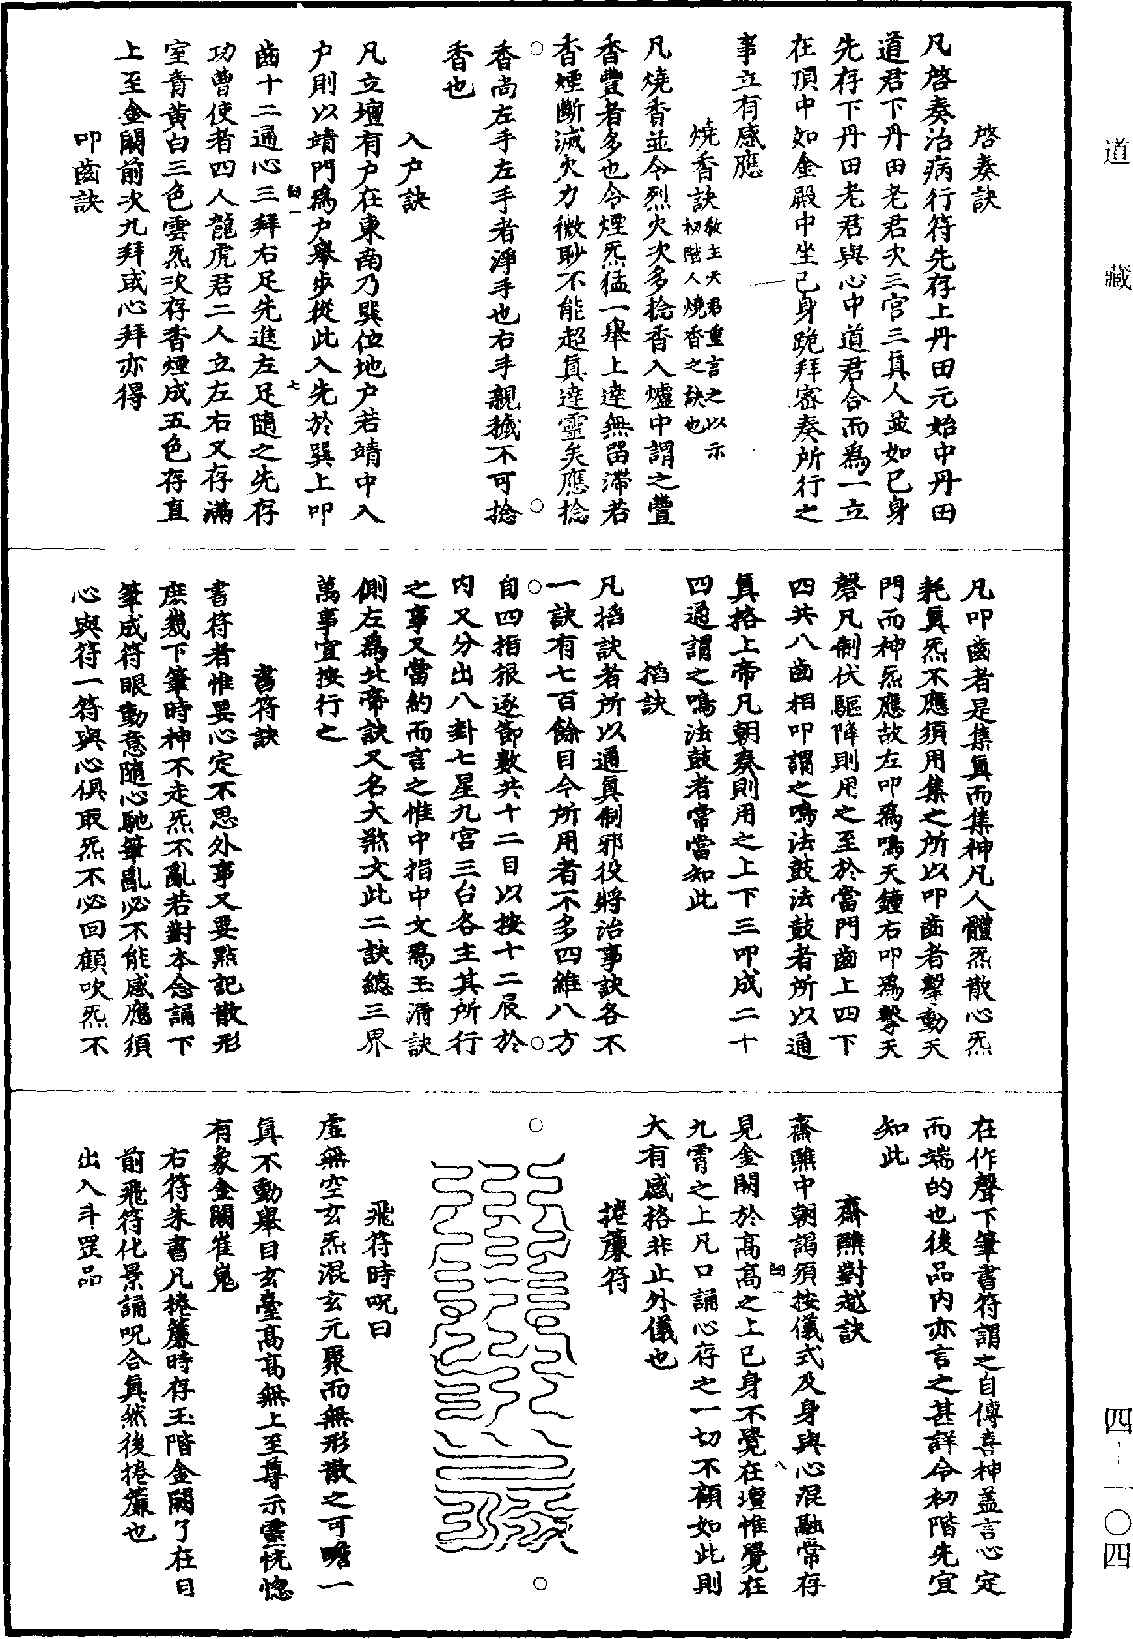 啓奏訣
凡啓奏治病行符先存上丹田元始中丹田
道君下丹田老君次三官三真人並如己身
先存下丹田老君與心中道君合而為一立
在頂中如金殿中坐己身跪拜密奏所行之
事立有感應
燒香訣教主天君重言之以示
初階人燒香之訣也
凡燒香並令烈火次多捻香入爐中謂之豐
香豐者多也令煙炁猛一舉上達無留滯若
香煙斷滅火力微眇不能超真達靈矣應捻
香尚左手左手者淨手也右手親穢不可捻
香也
入户訣
凡立壇有户在東南乃巽位地户若靖中入
户則以靖門爲户舉步從此入先於巽上叩
齒十二通心三拜右足先進左足隨之先存
功曹使者四人龍虎君二人立左右又存滿
室青黄白三色雲炁次存香煙成五色存直
上至金闕前次九拜或心拜亦得
叩齒訣
凡叩齒者是集真而集神凡人體炁散心炁
耗真炁不應須用集之所以叩齒者擊動天
門而神炁應故左叩爲鳴天鐘右叩爲擊天
磬凡制伏驅降則用之至於當門齒上四下
四共八齒相叩謂之鳴法鼓法鼓者所以通
真格上帝凡朝奏則用之上下三叩成二十
四通謂之鳴法鼓者常當知此
搯訣
凡搯訣者所以通真制邪役將治事訣各不
一訣有七百餘目今所用者不多四維八方
自四指根逐節數共十二目以按十二辰於
内又分出八卦七星九宫三台各主其所行
之事又當約而言之惟中指中文爲玉清訣
側左爲北帝訣又名大煞文此二訣總三界
萬事宜按行之
書符訣
書符者惟要心定不思外事又要點記散形
庶幾下筆時神不走炁不亂若對本念誦下
筆成符眼動意隨心馳筆亂必不能感應須
心與符一符與心俱取炁不必回顧吹炁不
在作聲下筆書符謂之自傳喜神蓋言心定
而端的也後品内亦言之甚詳令初階先宜
知此
齋醮對越訣
齋醮中朝謁須按儀式及身與心混融常存
見金闕於高高之上己身不覺在壇惟覺在
九霄之上凡口誦心存之一切不顧如此則
大有感格非止外儀也
捲簾符
飛符時呪曰
虚無空玄炁混玄元聚而無形散之可瞻一
真不動舉目玄臺高高無上至尊示靈恍惚
有象金闕崔嵬
右符朱書凡捲簾時存玉階金闕了在目
前飛符化景誦呪合真然後捲簾也
出入斗罡品
道藏
四-一〇四